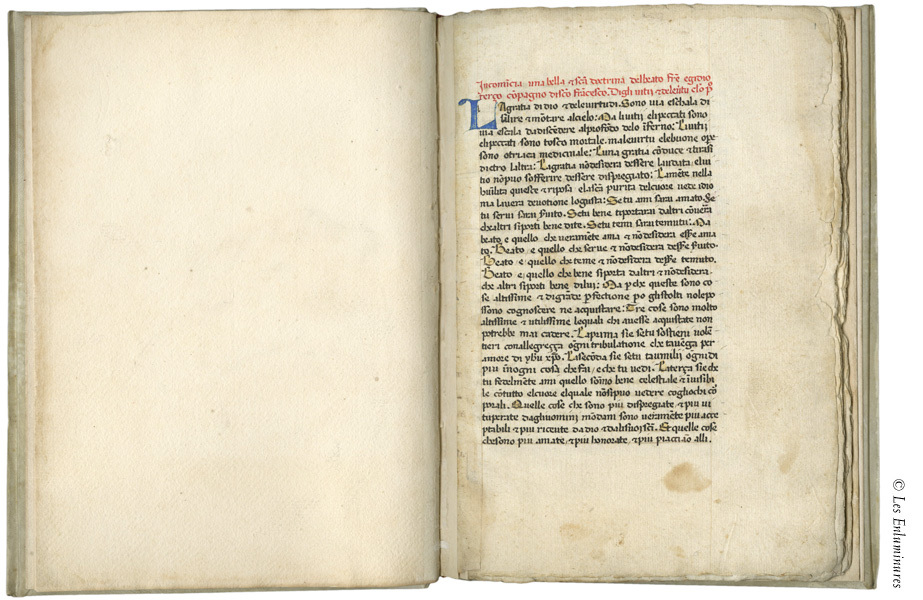 Incomīcia una bella & scā doctrina delbeato frē egidio
terço cōpagno discō francesco. Digli uitii & deleūtu clo pº
LAgratia di dio & deleuirtudi. Sono uia eschala di
salire & mōtare alcielo: Ma liuitii elipeccati sono
uia escala dadiscēdere alprofōdo delo īferno: Liuitii
elipeccati sono tosco mortale. maleuirtu elebuone ope
sono otriaca medicinale: Luna gratia cōduce & tirasi
dietro laltra: Lagratia nōdesidera dessere laudata. eluı
tio nōpuo sofferire dessere dispregiato: Lamēte nella
huīlita quiesce & riposa elascā purita delcuore uede idio
ma lauera deuotione logusta: Setu ami sarai amato. Se
tu serui sarai suito. Setu bene tiportarai daltri cōuerra
che altri siporti bene dite. Setu temi sarai temuto: Ma
beato e quello che ueramēte ama & nōdesidera esse ama
to. Beato e quello che serue & nōdesidera desse suito.
Beato e quello che teme & nōdesidera desse temuto.
Beato e quello che bene siporta daltri & nōdesidera
che altri siporti bene dilui: Ma p che queste sono co
se altissime & digrāde pfectione po glistolti nolepo
ssono cognoscere ne acquistare: Tre cose sono molto
altissime & utilissime lequali chi auesse acquistate non
potrebbe mai cadere. Laprima sie setu sostieni uolē
tieri conallegreçça ogni tribulatione che tauēga per
amore di yhu xpo. Lasecōda sie setu taumilii ogni di
piu īnogni cosa che fai e che tu uedi. Laterça sie che
tu fedelmēte ami quello sōmo bene celestiale & īuisibi
le cōtutto elcuore elquale nōsipuo uedere cogliochi cō
porali. Quelle cose che sono piu dispregiate & piu ui
tuperate daglihuomini mōdani sono ueramēte piu acce
ptabili & piu riceute dadio & dalisuoi scī. Et quelle cose
chesono piu amate & piu honorate & piu piacciāo alli.
© Les Enluminures